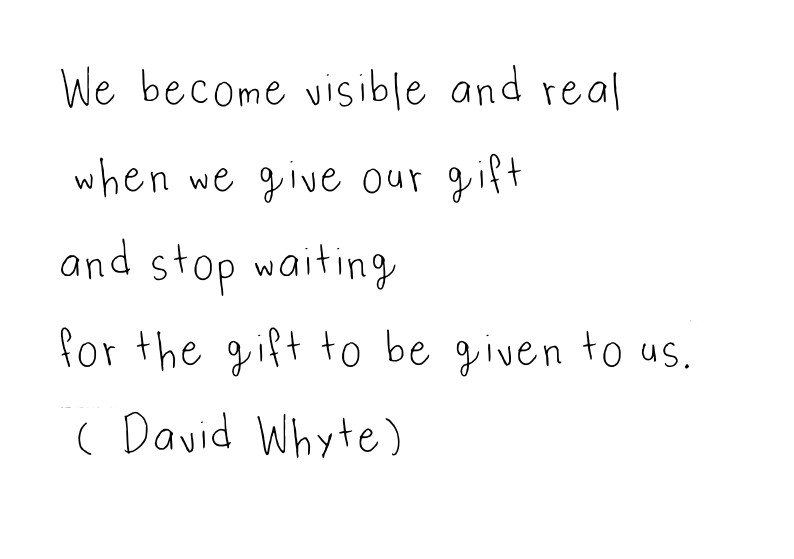 We become visible and real
when we give our gift
and stop waiting
for the gift to be given to us.
( David Whyte)